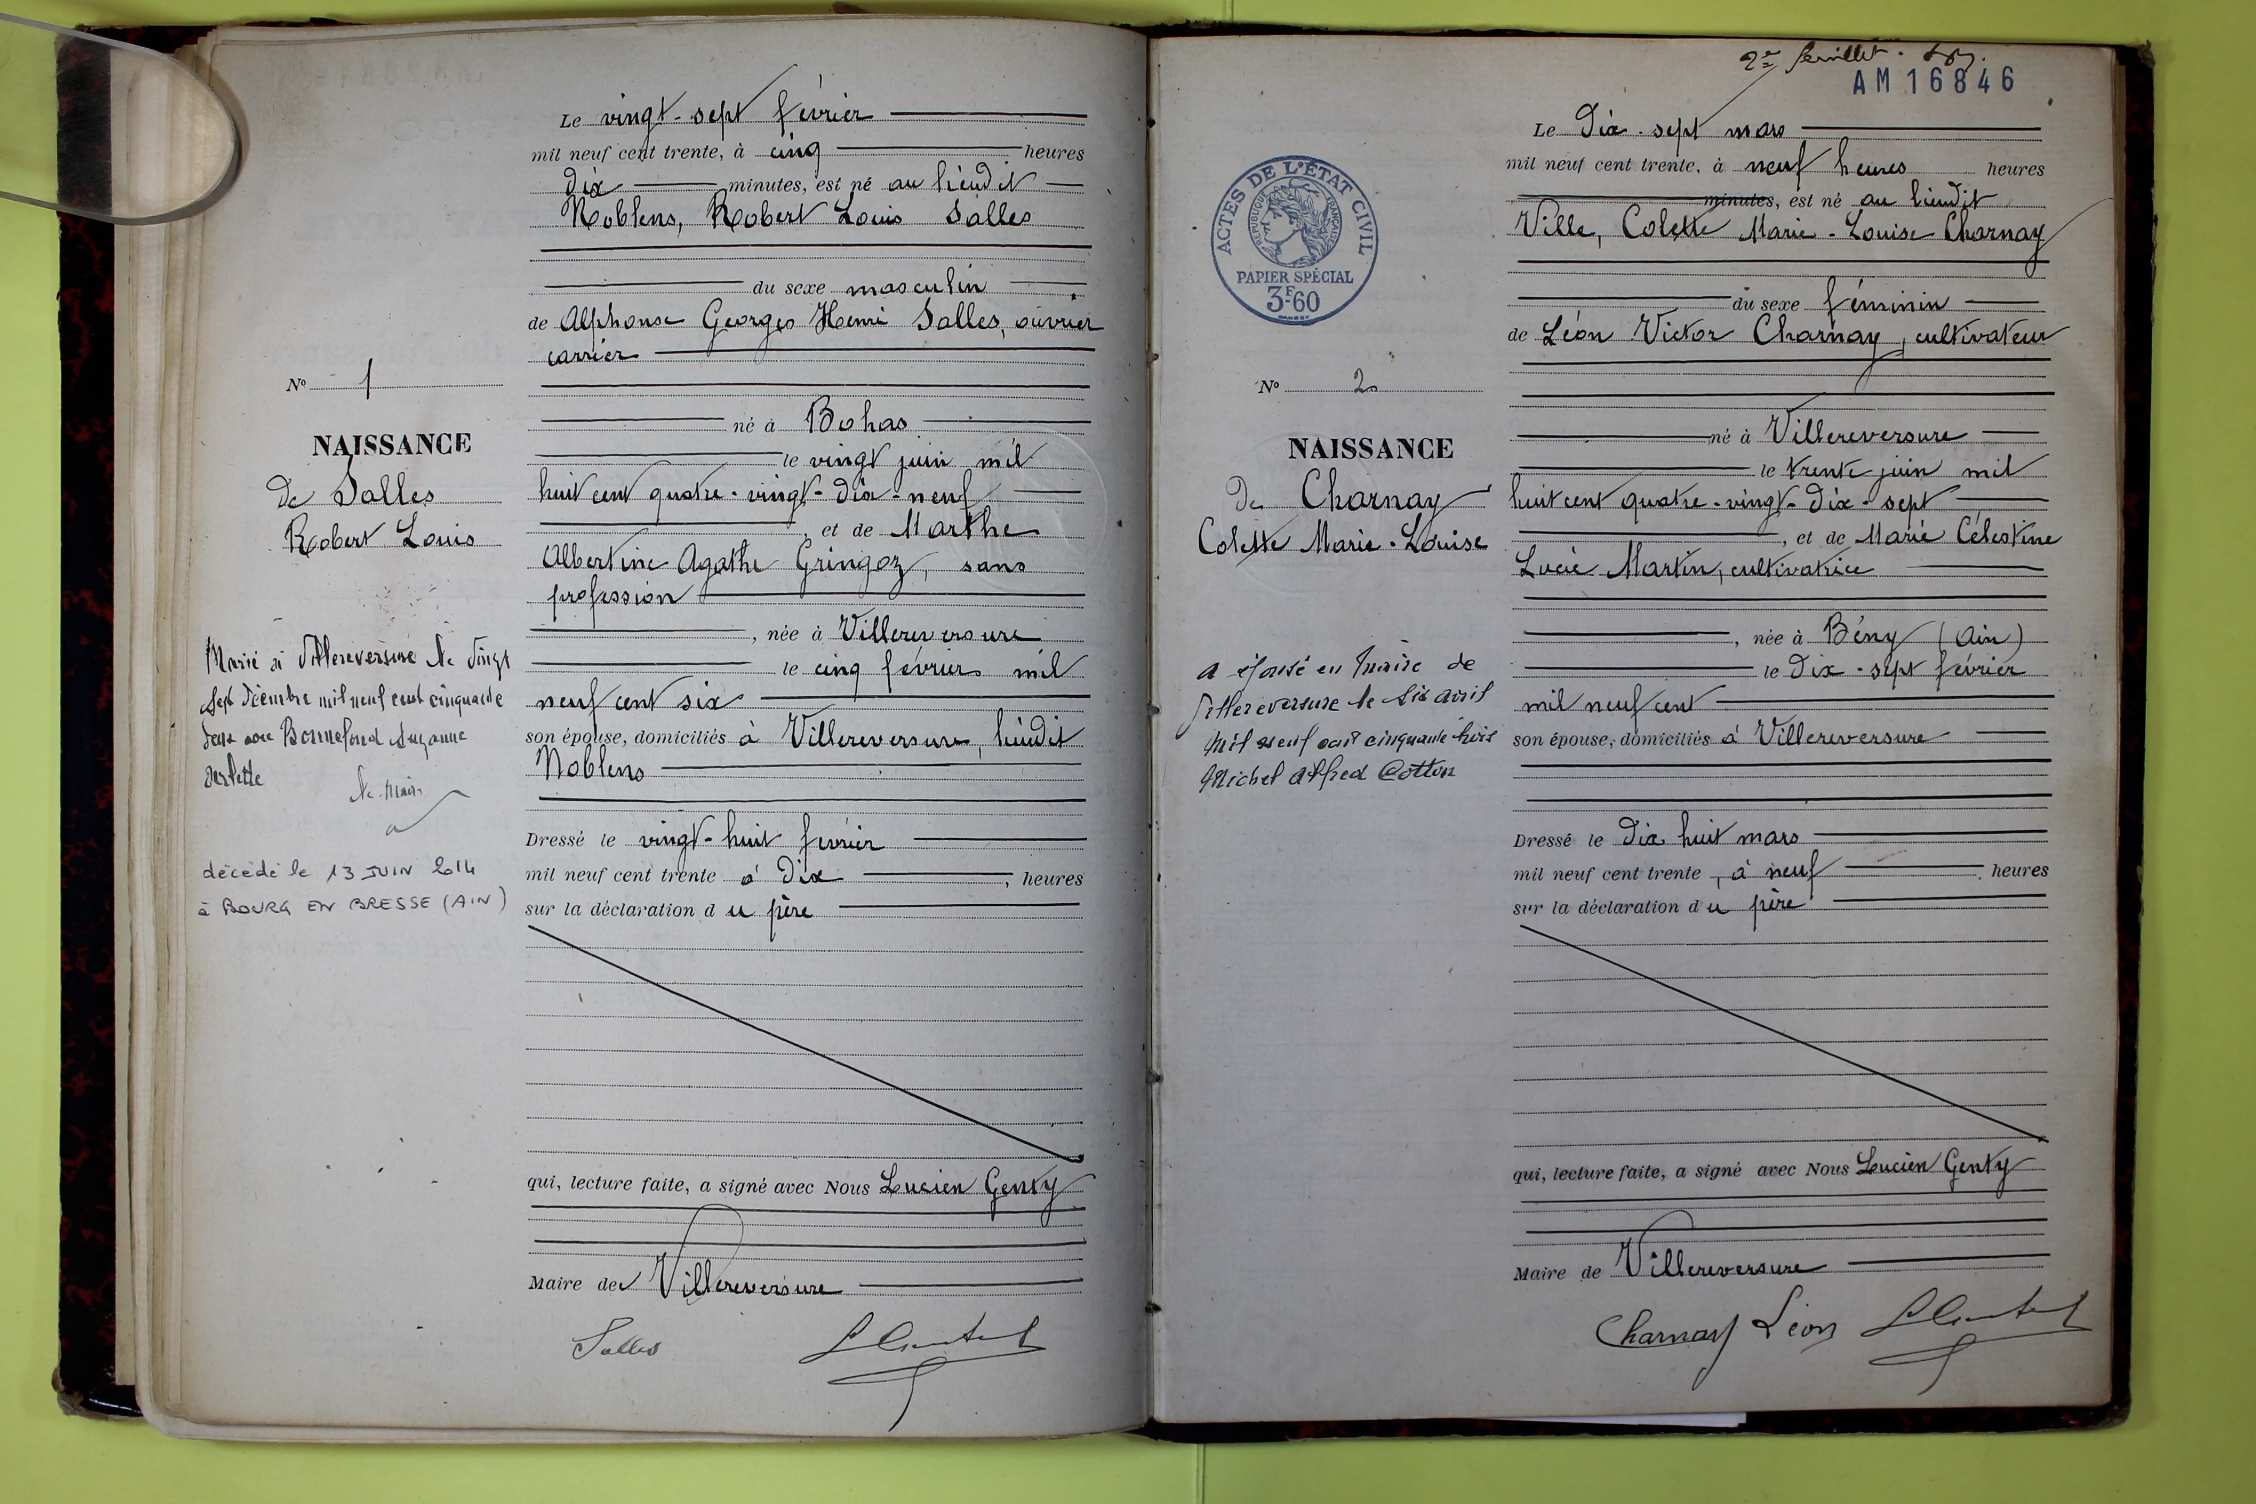 Le vingt-sept février
mil neuf cent trente, à cinq heures
dix minutes, est né au lieudit
Noblens, Robert Louis Salles
du sexe masculin
de Alphonse Georges Henri Salles, ouvrier
carrier
né à Bohas
le vingt juin mil
huit cent quatre-vingt-dix-neuf
, et de Marthe
Albertine Agathe Gringoz, sans
profession
, née à Villereversure
le cinq février mil
neuf cent six
son épouse, domiciliés à Villereversure, lieudit
Noblens
Dressé le vingt-huit février
mil neuf cent trente à dix, heures
sur la déclaration du père
qui, lecture faite, a signé avec Nous Lucien Genty
Maire de Villereversure
Salles
No 1
NAISSANCE
De Salles
Robert Louis
Marié à Villereversure le vingt
sept décembre mil neuf cent cinquante
deux avec Bonnefond Suzanne
Le Maire
décédé le 13 JUIN 2014
à BOURG EN BRESSE (AIN)
2e feuillet.
AM 16846
ACTES DE L'ÉTAT CIVIL
RÉPUBLIQUE FRANÇAISE
PAPIER SPÉCIAL
3F60
No 2
NAISSANCE
De Charnay
Colette Marie-Louise
a épousé en mairie de
Villereversure le six avril
mil neuf cent cinquante trois
Michel Alfred Cotton
Le Dix-sept mars
mil neuf cent trente, à neuf heures heures
minutes, est né au lieudit
Ville, Colette Marie-Louise Charnay
du sexe féminin
de Léon Victor Charnay, cultivateur
né à Villereversure
le trente juin mil
huit cent quatre-vingt-dix-sept
, et de Marie Célestine
Lucie Martin, cultivatrice
, née à Bény (Ain)
le dix-sept février
mil neuf cent
son épouse, domiciliés à Villereversure
Dressé le dix huit mars
mil neuf cent trente, à neuf heures
sur la déclaration du père
qui, lecture faite, a signé avec Nous Lucien Genty
Maire de Villereversure
Charnay Léon